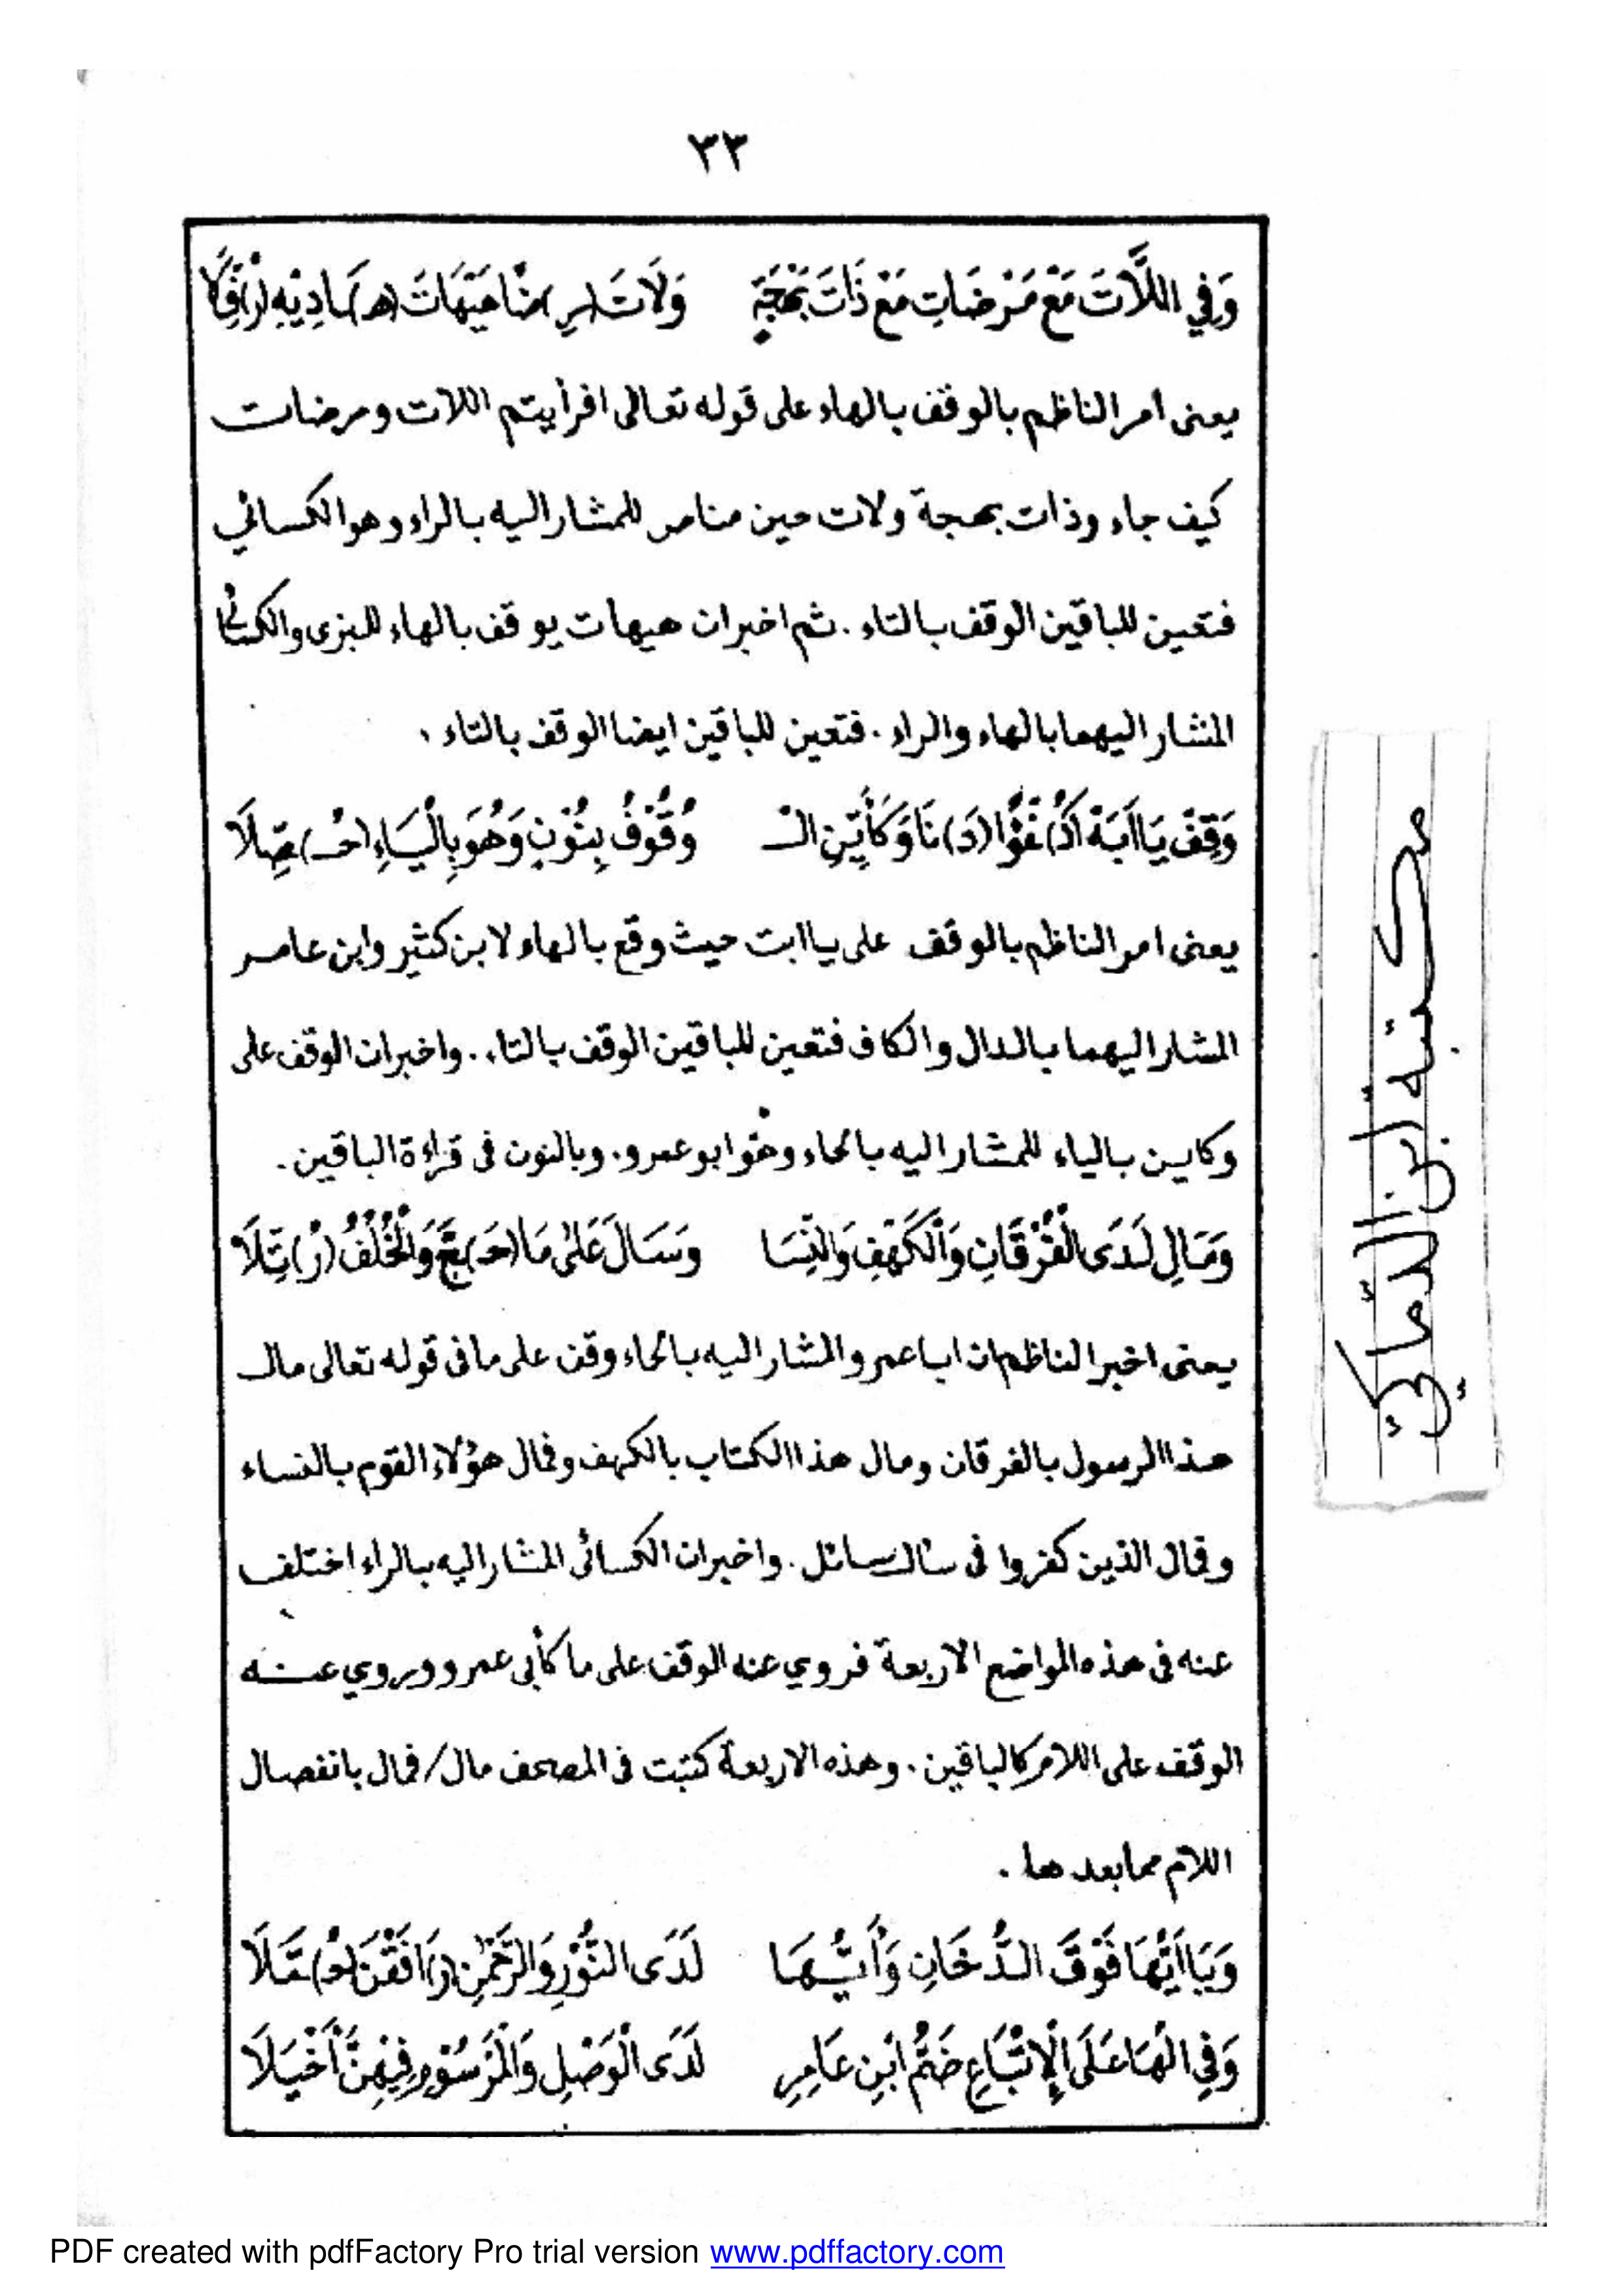 ٣٣
وَفِي اللَّاتَ مَعْ مَرْضَاتِ مَعْ ذَاتَ بَهْجَةٍ وَلَاتَ (رِ)ضًا هَيْهَاتَ (هَـ)ـادِيْهِ (رُ)فِّلَا
يعنى امر الناظم بالوقف بالهاء على قوله تعالى افرأيتم اللات ومرضات
كيف جاء وذات بهجة ولات حين مناص للمشار اليه بالراء وهو الكسائي
فتعين للباقين الوقف بالتاء . ثم اخبر ان هيهات يوقف بالهاء للبزى والكسائى
المشار اليهما بالهاء والراء . فتعين للباقين ايضا الوقف بالتاء .
وَقِفْ يَا اَبَهْ (كُ)فْؤًا (دَ)نَا وَكَأَيِّنِ الـ وُقُوْفُ بِنُوْنٍ وَهُوَ بِالْيَاءِ (حُـ)ـصِّلَا
يعنى امر الناظم بالوقف على يا ابت حيث وقع بالهاء لابن كثير وابن عامر
المشار اليهما بالدال والكاف فتعين للباقين الوقف بالتاء . واخبر ان الوقف على
وكاين بالياء للمشار اليه بالحاء وهو ابو عمرو . وبالنون فى قراءة الباقين .
وَمَالِ لَدَى الْفُرْقَانِ وَالْكَهْفِ وَالنِّسَا وَسَالَ عَلٰى مَا (حَـ)ـجَّ وَالْخُلْفُ (رُ)تِّلَا
يعنى اخبر الناظم ان ابا عمرو المشار اليه بالحاء وقف على ما فى قوله تعالى مال
هذا الرسول بالفرقان ومال هذا الكتاب بالكهف وفمال هؤلاء القوم بالنساء
وفمال الذين كفروا فى سأل سائل . واخبر ان الكسائى المشار اليه بالراء اختلف
عنه فى هذه المواضع الاربعة فروي عنه الوقف على ما كأبى عمرو وروي عنه
الوقف على اللام كالباقين . وهذه الاربعة كتبت فى المصحف مال/فمال بانفصال
اللام مما بعدها .
وَيَا اَيُّهَا فَوْقَ الدُّخَانِ وَأَيُّهَا لَدَى النُّوْرِ وَالرَّحْمٰنِ (رَ)افَقْنَ (حُـ)ـمَّلَا
وَفِي الْهَا عَلَى الْإِتْبَاعِ ضَمُّ ابْنِ عَامِرٍ لَدَى الْوَصْلِ وَالْمَرْسُوْمُ فِيْهِنَّ أَخْيَلَا
مكتبة ابن الدماكي
PDF created with pdfFactory Pro trial version www.pdffactory.com